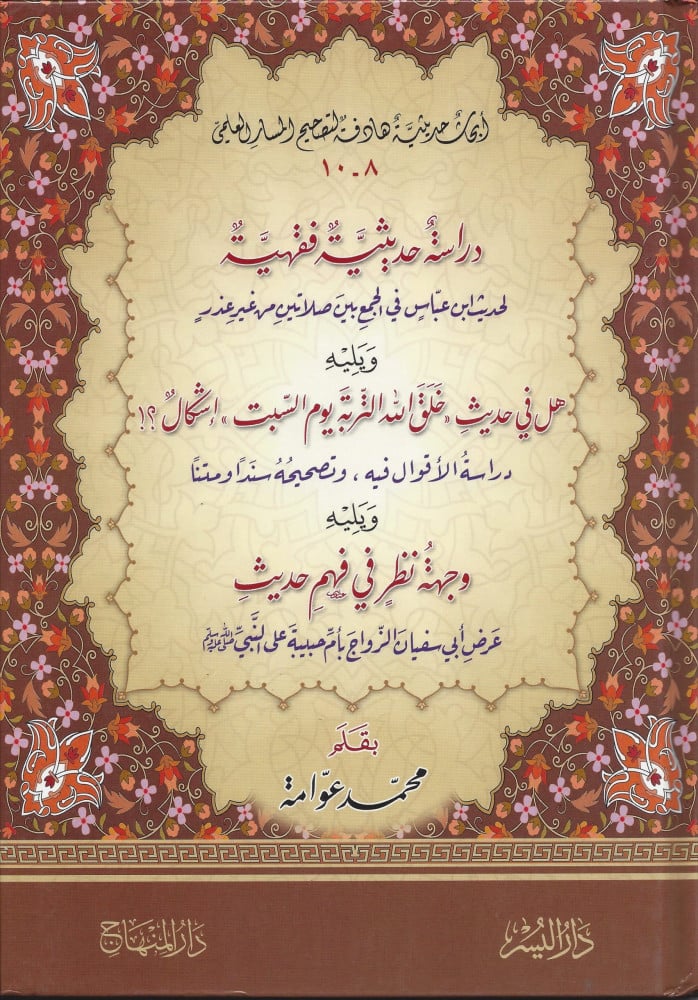 أبحاثٌ حديثيةٌ هادفةٌ لتصحيح المسار العلمي
٨ - ١٠
دراسةٌ حديثيةٌ فقهيةٌ
لحديث ابن عبّاسٍ في الجمع بين صلاتين من غير عذرٍ
وَيَليْهِ
هل في حديثِ «خَلَقَ اللهُ التربةَ يوم السّبت» إشكالٌ؟!
دراسةُ الأقوال فيه، وتصحيحُهُ سندًا ومتنًا
وَيَليْهِ
وجهةُ نظرٍ في فهمِ حديثِ
عَرضِ أبي سفيان الزواج بأمّ حبيبة على النَّبيّ ﷺ
بقَلَم
محمّد عوّامة
دَارُ اليُسْر
دَارُ المِنْهَاج